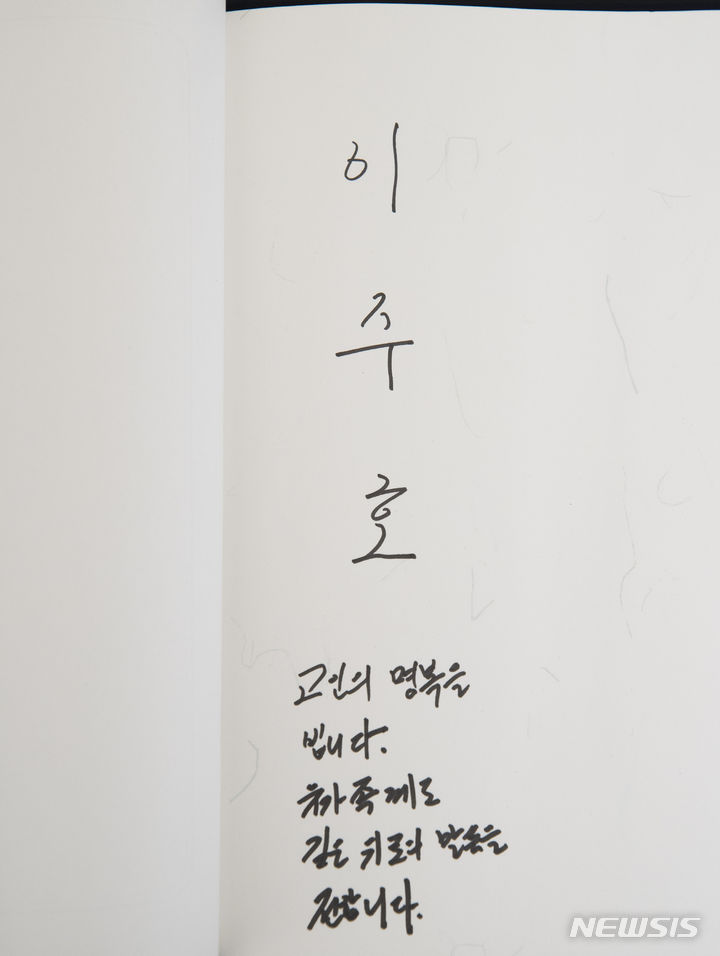 이
주
호
고인의 명복을
빕니다.
유가족께도
깊은 위로의 말씀을
전합니다.
NEWSIS